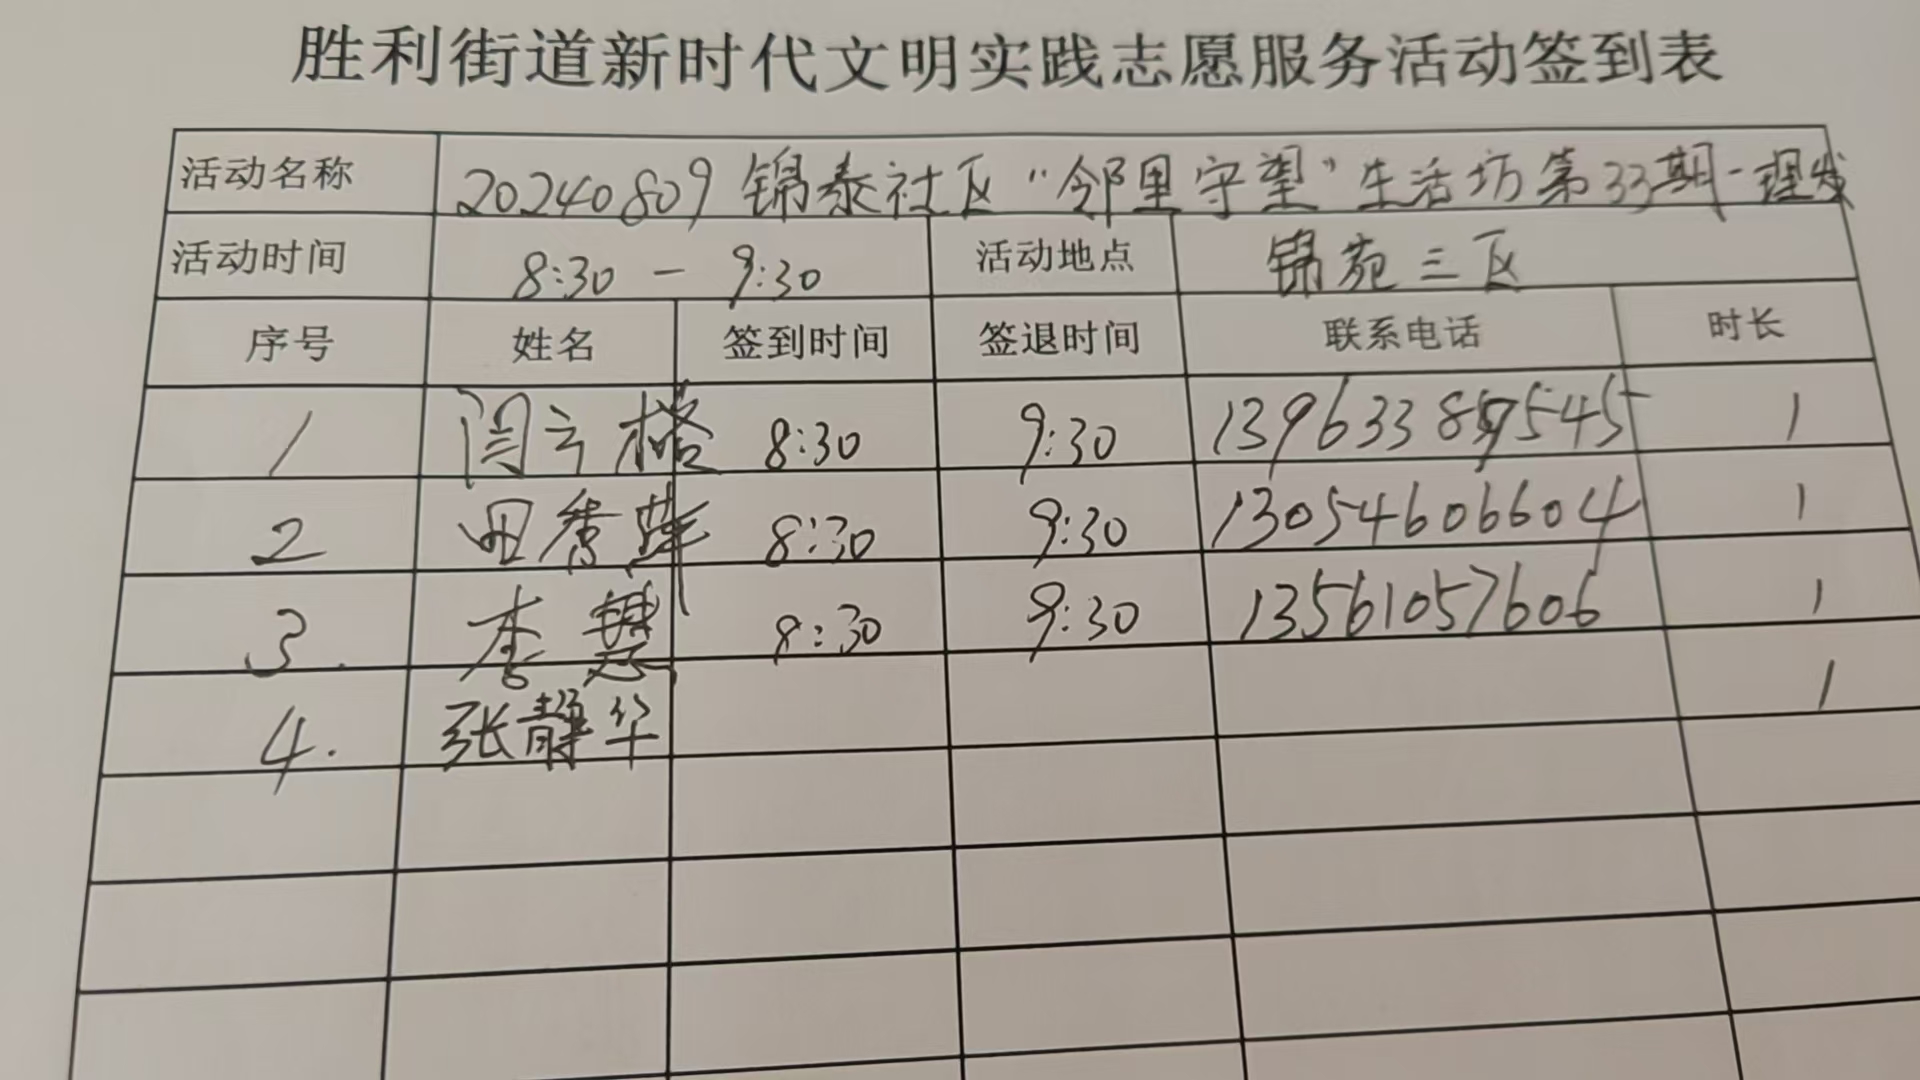 胜利街道新时代文明实践志愿服务活动签到表
活动名称 20240809锦泰社区“邻里守望”生活坊第33期-理发
活动时间 8:30 - 9:30 活动地点 锦苑三区
序号 姓名 签到时间 签退时间 联系电话 时长
1 闫云格 8:30 9:30 1
2 田秀萍 8:30 9:30 13054606604 1
3. 李慧 8:30 9:30 13561057606 1
4. 张静华 1